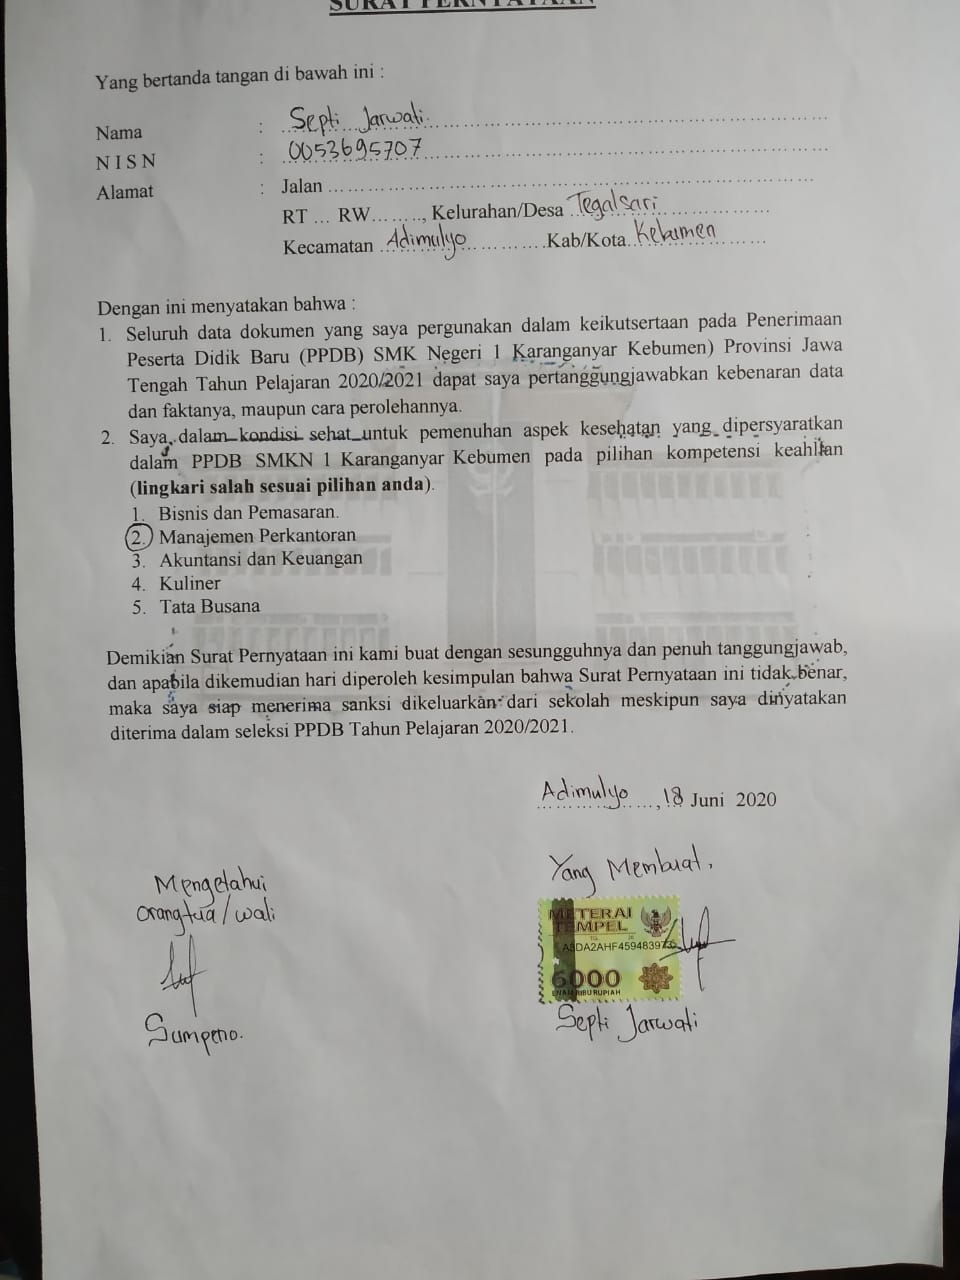 SURAT PERNYATAAN
Yang bertanda tangan di bawah ini :
Nama : Septi Jarwati
N I S N : 0053695707
Alamat : Jalan ...........................................................
RT ... RW........, Kelurahan/Desa Tegalsari
Kecamatan Adimulyo Kab/Kota Kebumen
Dengan ini menyatakan bahwa :
1. Seluruh data dokumen yang saya pergunakan dalam keikutsertaan pada Penerimaan
Peserta Didik Baru (PPDB) SMK Negeri 1 Karanganyar Kebumen) Provinsi Jawa
Tengah Tahun Pelajaran 2020/2021 dapat saya pertanggungjawabkan kebenaran data
dan faktanya, maupun cara perolehannya.
2. Saya dalam kondisi sehat untuk pemenuhan aspek kesehatan yang dipersyaratkan
dalam PPDB SMKN 1 Karanganyar Kebumen pada pilihan kompetensi keahlian
(lingkari salah sesuai pilihan anda).
1. Bisnis dan Pemasaran.
2. Manajemen Perkantoran
3. Akuntansi dan Keuangan
4. Kuliner
5. Tata Busana
Demikian Surat Pernyataan ini kami buat dengan sesungguhnya dan penuh tanggungjawab,
dan apabila dikemudian hari diperoleh kesimpulan bahwa Surat Pernyataan ini tidak benar,
maka saya siap menerima sanksi dikeluarkan dari sekolah meskipun saya dinyatakan
diterima dalam seleksi PPDB Tahun Pelajaran 2020/2021.
Adimulyo, 18 Juni 2020
Yang Membuat,
Mengetahui
Orangtua/wali
METERAI
TEMPEL
6000
ENAM RIBU RUPIAH
Septi Jarwati
Sumpeno.